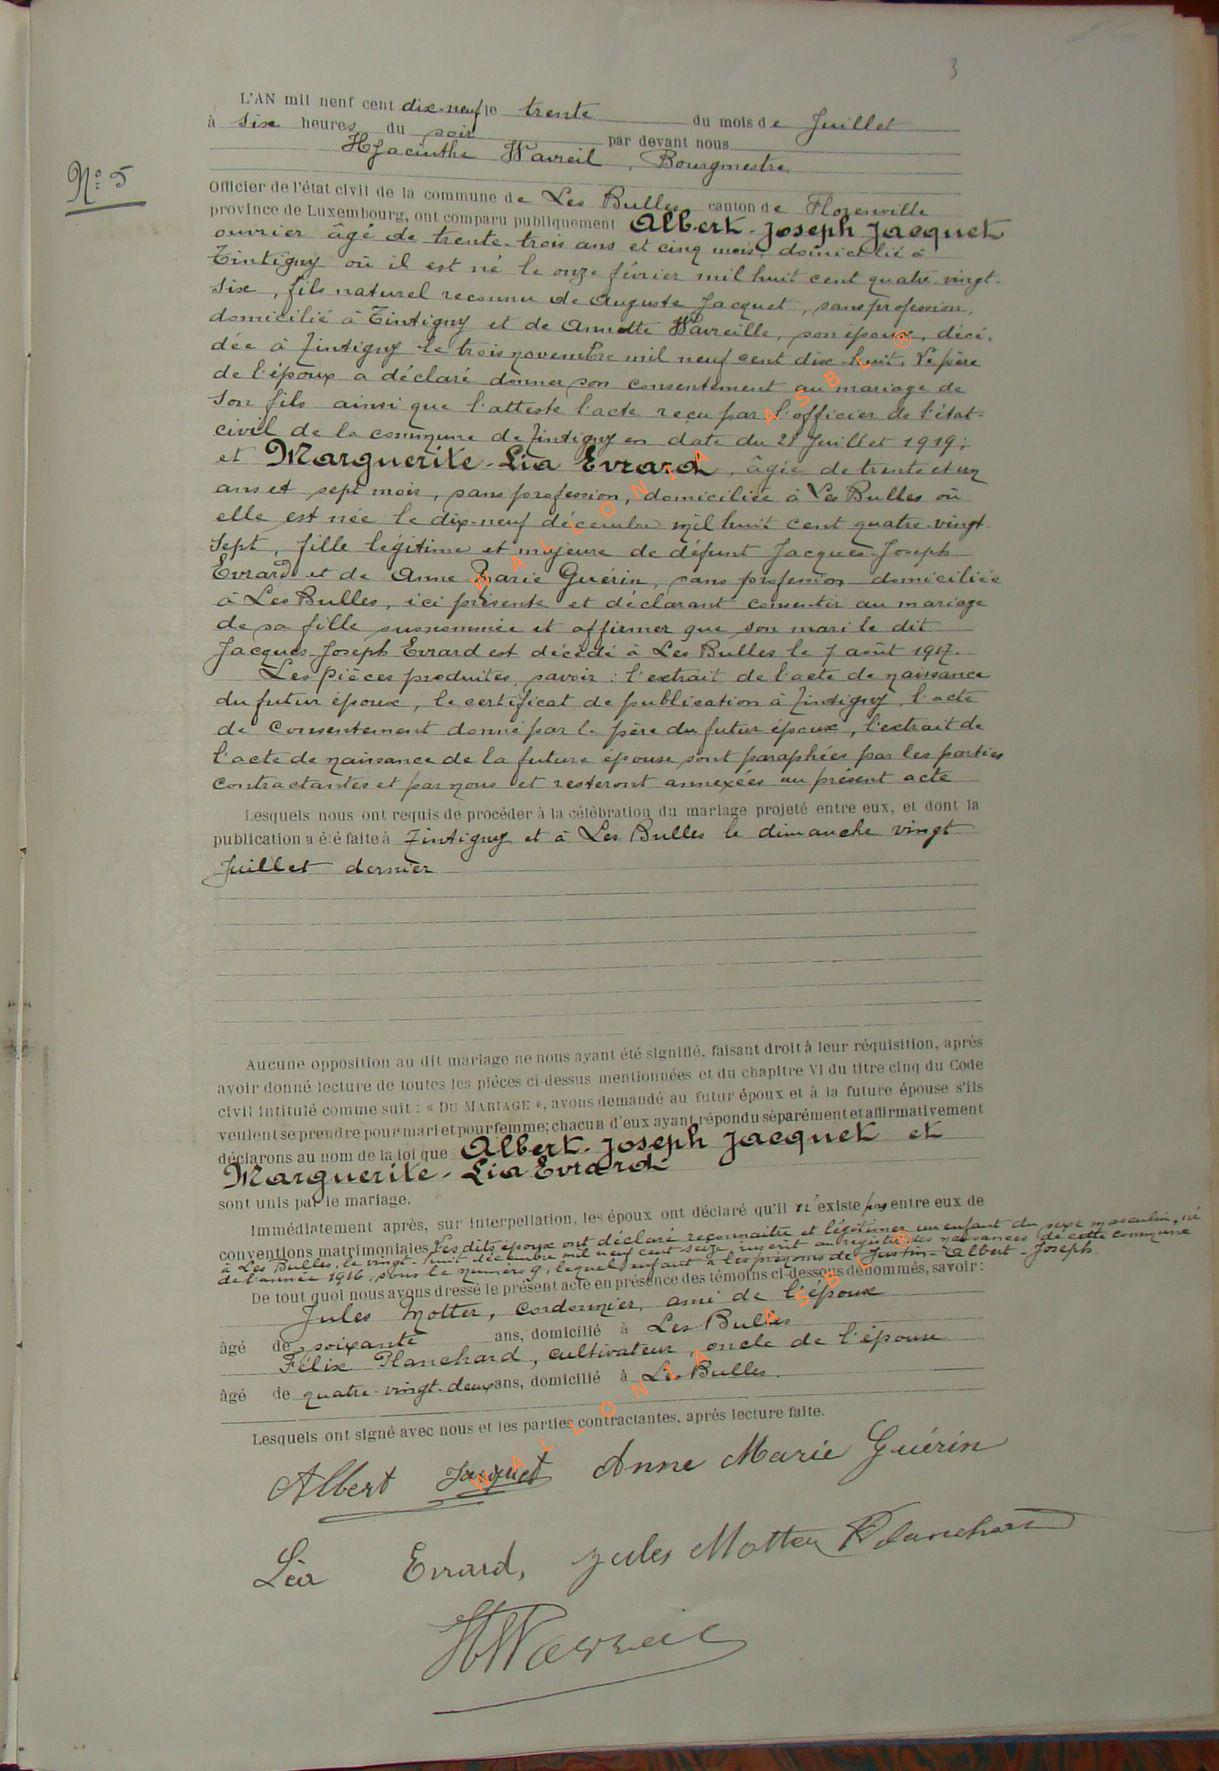 3
L'AN mil neuf cent dix-neuf le trente du mois de Juillet
à six heures du soir par devant nous
Hyacinthe Wavreil, Bourgmestre
N° 5
Officier de l'état civil de la commune de Les Bulles canton de Florenville
province de Luxembourg, ont comparu publiquement Albert-Joseph Jacquet
ouvrier âgé de trente-trois ans et cinq mois, domicilié à
Tintigny où il est né le onze février mil huit cent quatre-vingt-
six, fils naturel reconnu de Auguste Jacquet, sans profession,
domicilié à Tintigny et de Annette Wavreille, son épouse, décé-
dée à Tintigny le trois novembre mil neuf cent dix-huit. Le père
de l'époux a déclaré donner son consentement au mariage de
son fils ainsi que l'atteste l'acte reçu par l'officier de l'état-
civil de la commune de Tintigny en date du 28 Juillet 1919;
et Marguerite-Lia Evrard, âgée de trente et un
ans et sept mois, sans profession, domiciliée à Les Bulles où
elle est née le dix-neuf décembre mil huit cent quatre-vingt-
sept, fille légitime et majeure de défunt Jacques-Joseph
Evrard et de Anne Marie Guérin, sans profession domiciliée
à Les Bulles, ici présente et déclarant consentir au mariage
de sa fille susnommée et affirmer que son mari le dit
Jacques-Joseph Evrard est décédé à Les Bulles le 7 août 1917.
Les pièces produites, savoir : l'extrait de l'acte de naissance
du futur époux, le certificat de publication à Tintigny, l'acte
de consentement donné par le père du futur époux, l'extrait de
l'acte de naissance de la future épouse sont paraphées par les parties
contractantes et par nous et resteront annexées au présent acte
Lesquels nous ont requis de procéder à la célébration du mariage projeté entre eux, et dont la
publication a été faite à Tintigny et à Les Bulles le dimanche vingt
Juillet dernier
Aucune opposition au dit mariage ne nous ayant été signifié, faisant droit à leur réquisition, après
avoir donné lecture de toutes les pièces ci-dessus mentionnées et du chapitre VI du titre cinq du Code
civil intitulé comme suit : « DU MARIAGE », avons demandé au futur époux et à la future épouse s'ils
veulent se prendre pour mari et pour femme; chacun d'eux ayant répondu séparément et affirmativement
déclarons au nom de la loi que Albert-Joseph Jacquet et
Marguerite-Lia Evrard
sont unis par le mariage.
Immédiatement après, sur interpellation, les époux ont déclaré qu'il n'existe pas entre eux de
conventions matrimoniales Les dits époux ont déclaré reconnaître et légitimer un enfant du sexe masculin, né
à Les Bulles, le vingt-huit décembre mil neuf cent seize, inscrit au registre des naissances de cette commune
de l'année 1916, sous le numéro 9, lequel enfant a les prénoms de Justin-Albert-Joseph.
De tout quoi nous avons dressé le présent acte en présence des témoins ci-dessous dénommés, savoir :
Jules Motter, cordonnier, ami de l'époux
âgé de soixante ans, domicilié à Les Bulles
Félix Planchard, cultivateur, oncle de l'épouse
âgé de quatre-vingt-deux ans, domicilié à Les Bulles.
Lesquels ont signé avec nous et les parties contractantes, après lecture faite.
Albert Jacquet Anne Marie Guérin
Léa Evrard, Jules Motter F Planchard
HWavreil
WALLONIA ASBL ®
WALLONIA ASBL ®